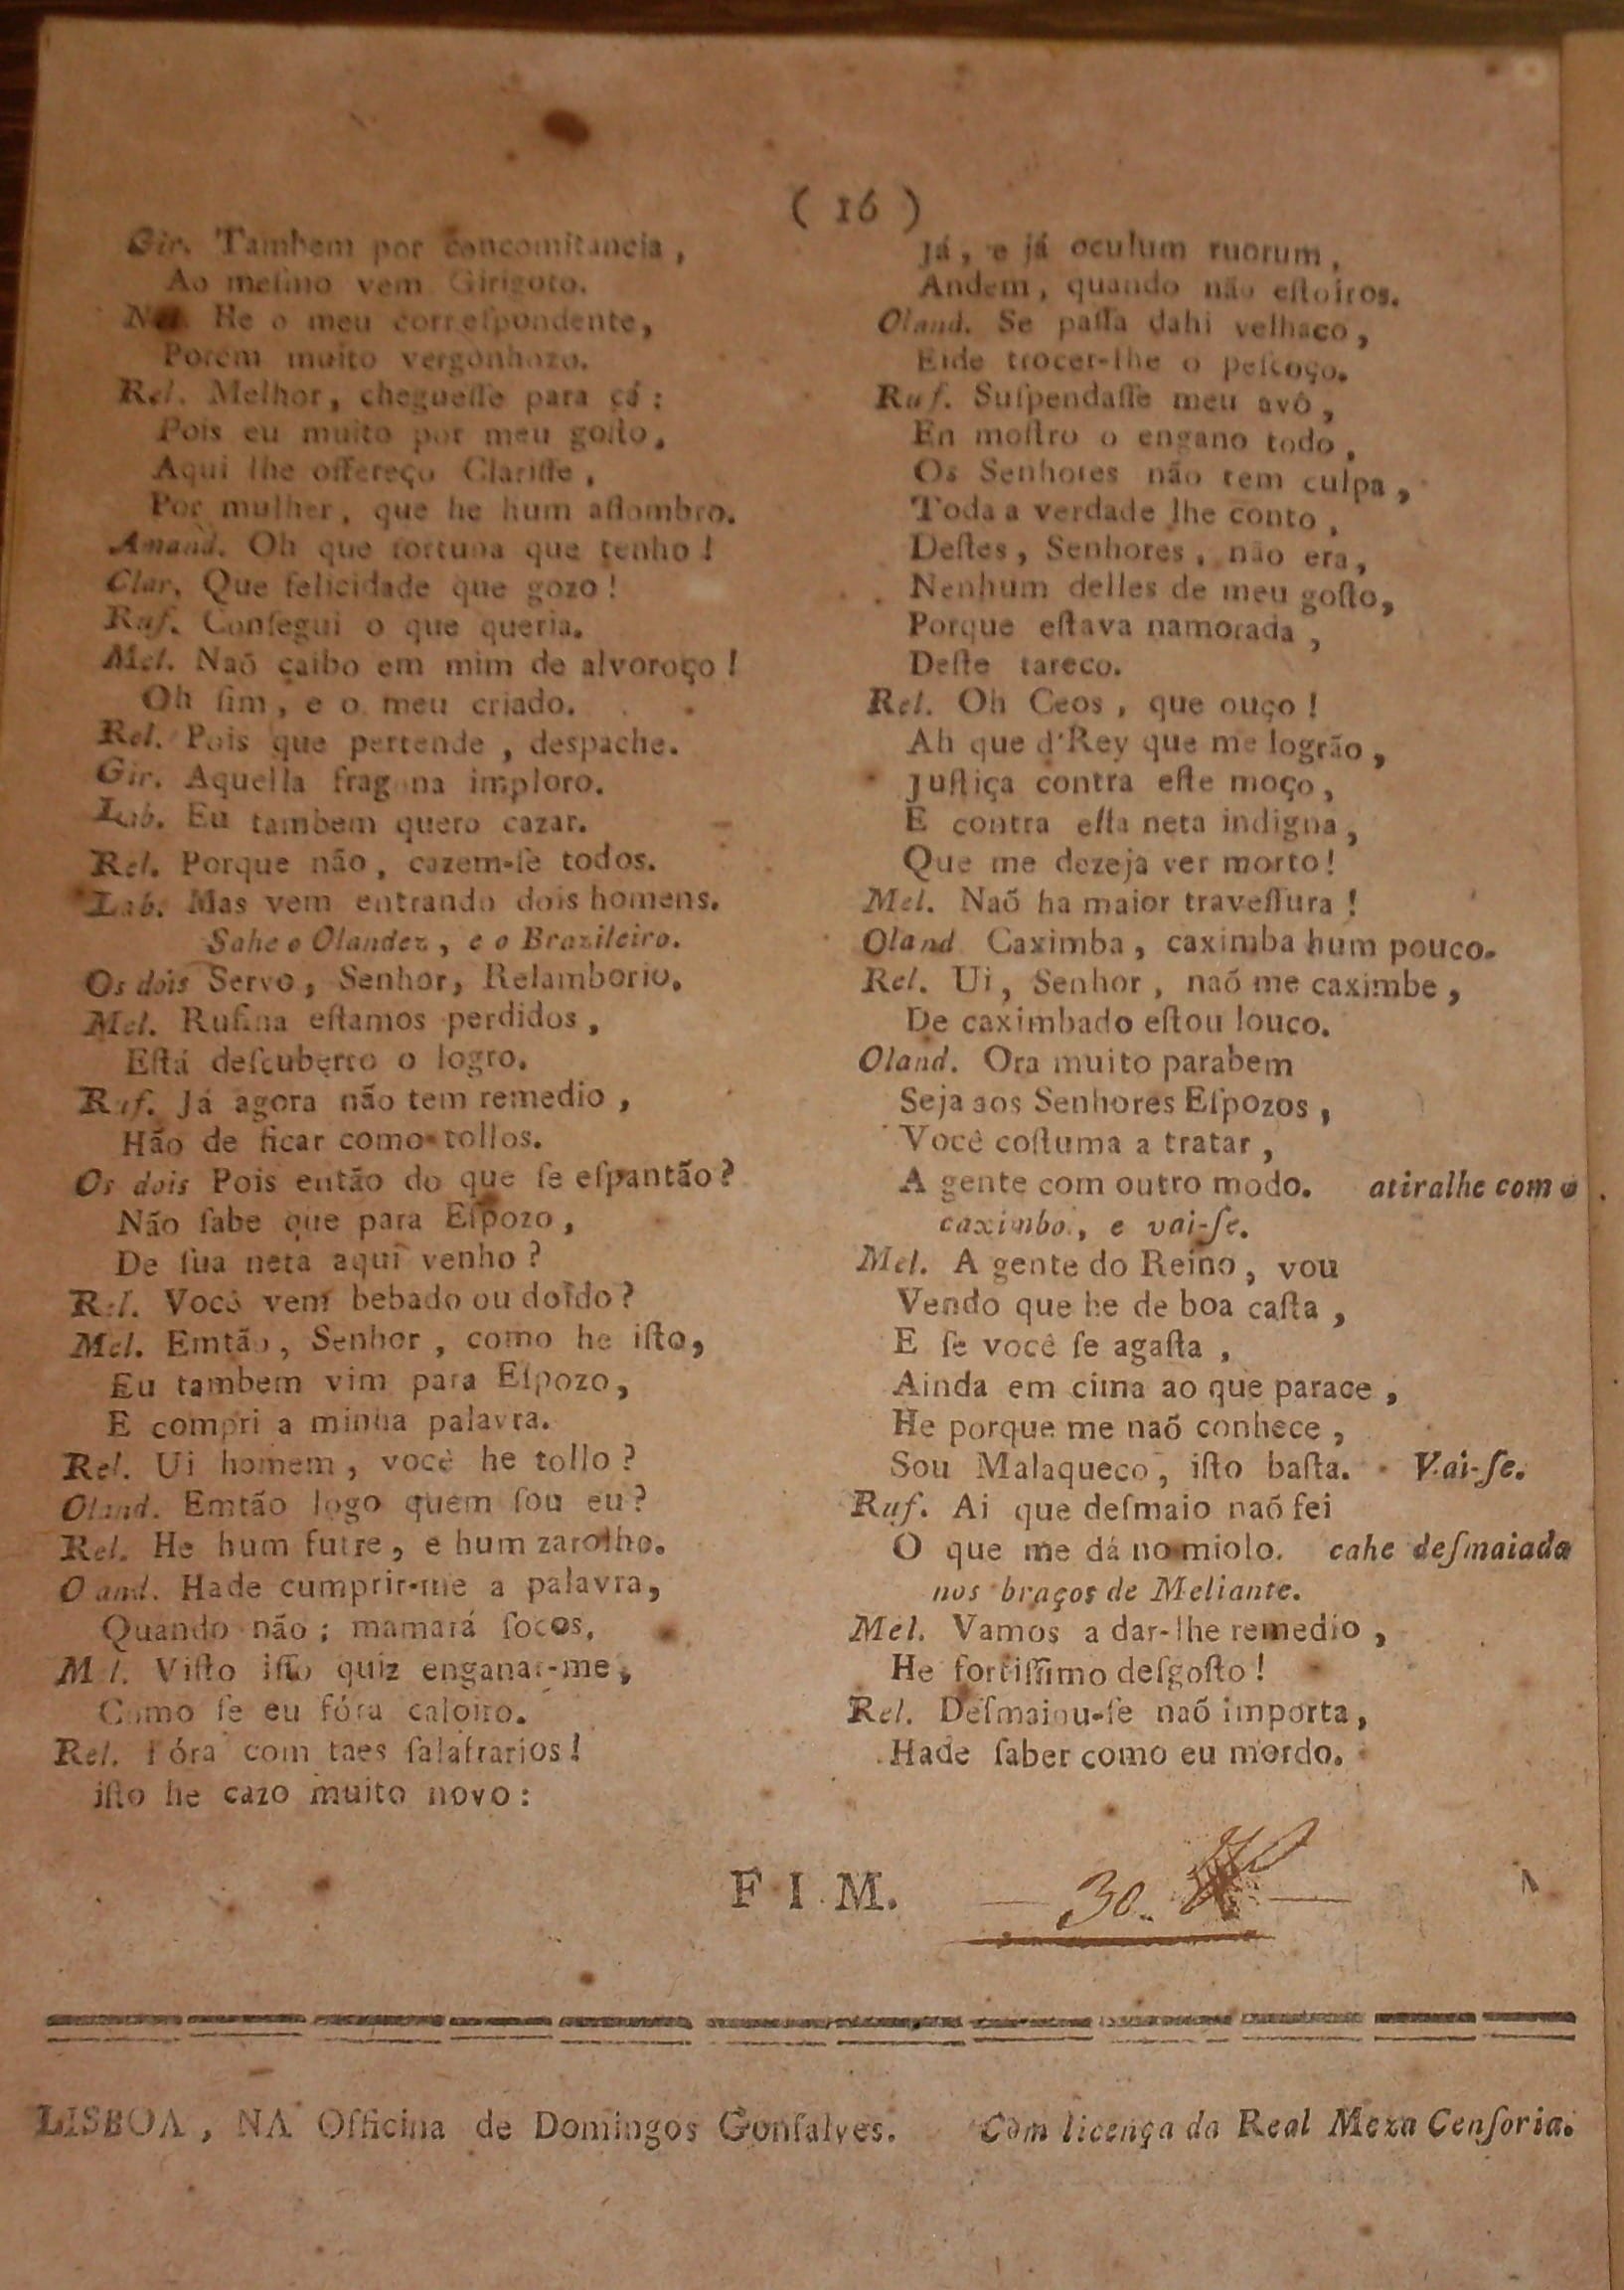 ( 16 )
Gir. Tambem por concomitancia ,
Ao meſmo vem Girigoto.
He o meu correſpondente,
Porém muito vergonhozo.
Rel. Melhor, chegueſſe para cá :
Pois eu muito por meu goſto,
Aqui lhe offereço Clariſſe ,
Por mulher, que he hum aſſombro.
Amand. Oh que fortuna que tenho !
Clar. Que felicidade que gozo !
Ruf. Conſegui o que queria.
Mel. Naõ caibo em mim de alvoroço !
Oh ſim, e o meu criado.
Rel. Pois que pertende , despache.
Gir. Aquella fragona imploro.
Lab. Eu tambem quero cazar.
Rel. Porque não , cazem-ſe todos.
Lab. Mas vem entrando dois homens.
Sahe o Olandez , e o Brazileiro.
Os dois Servo, Senhor, Relamborio.
Mel. Rufina eſtamos perdidos ,
Eſtá deſcuberto o logro.
Ruf. Já agora não tem remedio ,
Hão de ficar como tollos.
Os dois Pois então do que ſe eſpantão ?
Não ſabe que para Eſpozo ,
De ſua neta aqui venho ?
Rel. Você vem bebado ou doido ?
Mel. Emtão , Senhor , como he iſto,
Eu tambem vim para Eſpozo,
E compri a minha palavra.
Rel. Ui homem , você he tollo ?
Oland. Emtão logo quem ſou eu ?
Rel. He hum futre , e hum zarolho.
Oland. Hade cumprir-me a palavra,
Quando não ; mamará ſocos.
Mel. Viſto iſſo quiz enganar-me,
Como ſe eu fóra caloiro.
Rel. Fóra com taes ſalafrarios !
iſto he cazo muito novo :
Já , e já oculum ruorum ,
Andem , quando não eſtoiros.
Oland. Se paſſa dahi velhaco ,
Eide trocer-lhe o peſcoço.
Ruf. Suſpendaſſe meu avô ,
En moſtro o engano todo ,
Os Senhores não tem culpa ,
Toda a verdade lhe conto ,
Deſtes , Senhores , não era ,
Nenhum delles de meu goſto,
Porque eſtava namorada ,
Deſte tareco.
Rel. Oh Ceos , que ouço !
Ah que d'Rey que me logrão ,
Juſtiça contra eſte moço ,
E contra eſta neta indigna ,
Que me dezeja ver morto !
Mel. Naõ ha maior traveſſura !
Oland Caximba , caximba hum pouco.
Rel. Ui , Senhor , naõ me caximbe ,
De caximbado eſtou louco.
Oland. Ora muito parabem
Seja aos Senhores Eſpozos ,
Você coſtuma a tratar ,
A gente com outro modo. atiralhe com o
caximbo , e vai-ſe.
Mel. A gente do Reino , vou
Vendo que he de boa caſta ,
E ſe você ſe agaſta ,
Ainda em cima ao que parace ,
He porque me naõ conhece ,
Sou Malaqueco , iſto baſta. Vai-ſe.
Ruf. Ai que deſmaio naõ ſei
O que me dá no miolo. cahe deſmaiada
nos braços de Meliante.
Mel. Vamos a dar-lhe remedio ,
He fortiſſimo deſgoſto !
Rel. Deſmaiou-ſe naõ importa,
Hade ſaber como eu mordo.
F I M.
30.
LISBOA , NA Officina de Domingos Gonſalves. Com licença da Real Meza Cenſoria.